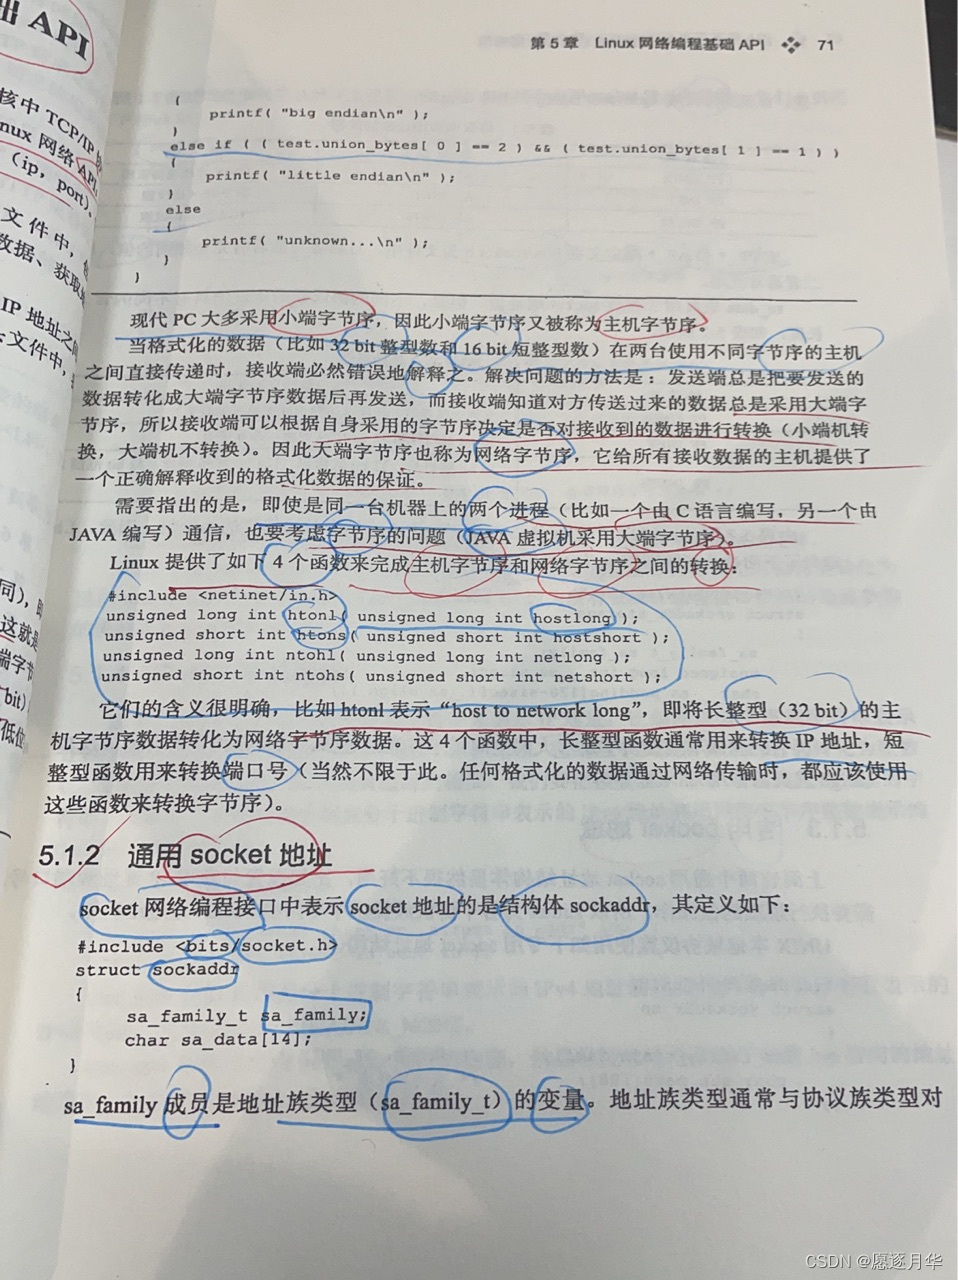 础 API
核中 TCP/IP
nux 网络 API
(ip, port)、
文件中,
数据、获取
IP 地址之
文件中,
同),
这就是
端字节
bit)
低位
第 5 章 Linux 网络编程基础 API 71
{
printf( "big endian\n" );
}
else if ( ( test.union_bytes[ 0 ] == 2 ) && ( test.union_bytes[ 1 ] == 1 ) )
{
printf( "little endian\n" );
}
else
{
printf( "unknown...\n" );
}
}
现代 PC 大多采用小端字节序,因此小端字节序又被称为主机字节序。
当格式化的数据(比如 32 bit 整型数和 16 bit 短整型数)在两台使用不同字节序的主机
之间直接传递时,接收端必然错误地解释之。解决问题的方法是:发送端总是把要发送的
数据转化成大端字节序数据后再发送,而接收端知道对方传送过来的数据总是采用大端字
节序,所以接收端可以根据自身采用的字节序决定是否对接收到的数据进行转换(小端机转
换,大端机不转换)。因此大端字节序也称为网络字节序,它给所有接收数据的主机提供了
一个正确解释收到的格式化数据的保证。
需要指出的是,即使是同一台机器上的两个进程(比如一个由 C 语言编写,另一个由
JAVA 编写)通信,也要考虑字节序的问题(JAVA 虚拟机采用大端字节序)。
Linux 提供了如下 4 个函数来完成主机字节序和网络字节序之间的转换:
#include <netinet/in.h>
unsigned long int htonl( unsigned long int hostlong );
unsigned short int htons( unsigned short int hostshort );
unsigned long int ntohl( unsigned long int netlong );
unsigned short int ntohs( unsigned short int netshort );
它们的含义很明确,比如 htonl 表示“host to network long”,即将长整型(32 bit)的主
机字节序数据转化为网络字节序数据。这 4 个函数中,长整型函数通常用来转换 IP 地址,短
整型函数用来转换端口号(当然不限于此。任何格式化的数据通过网络传输时,都应该使用
这些函数来转换字节序)。
5.1.2 通用 socket 地址
socket 网络编程接口中表示 socket 地址的是结构体 sockaddr,其定义如下:
#include <bits/socket.h>
struct sockaddr
{
sa_family_t sa_family;
char sa_data[14];
}
sa_family 成员是地址族类型(sa_family_t)的变量。地址族类型通常与协议族类型对
CSDN @愿逐月华